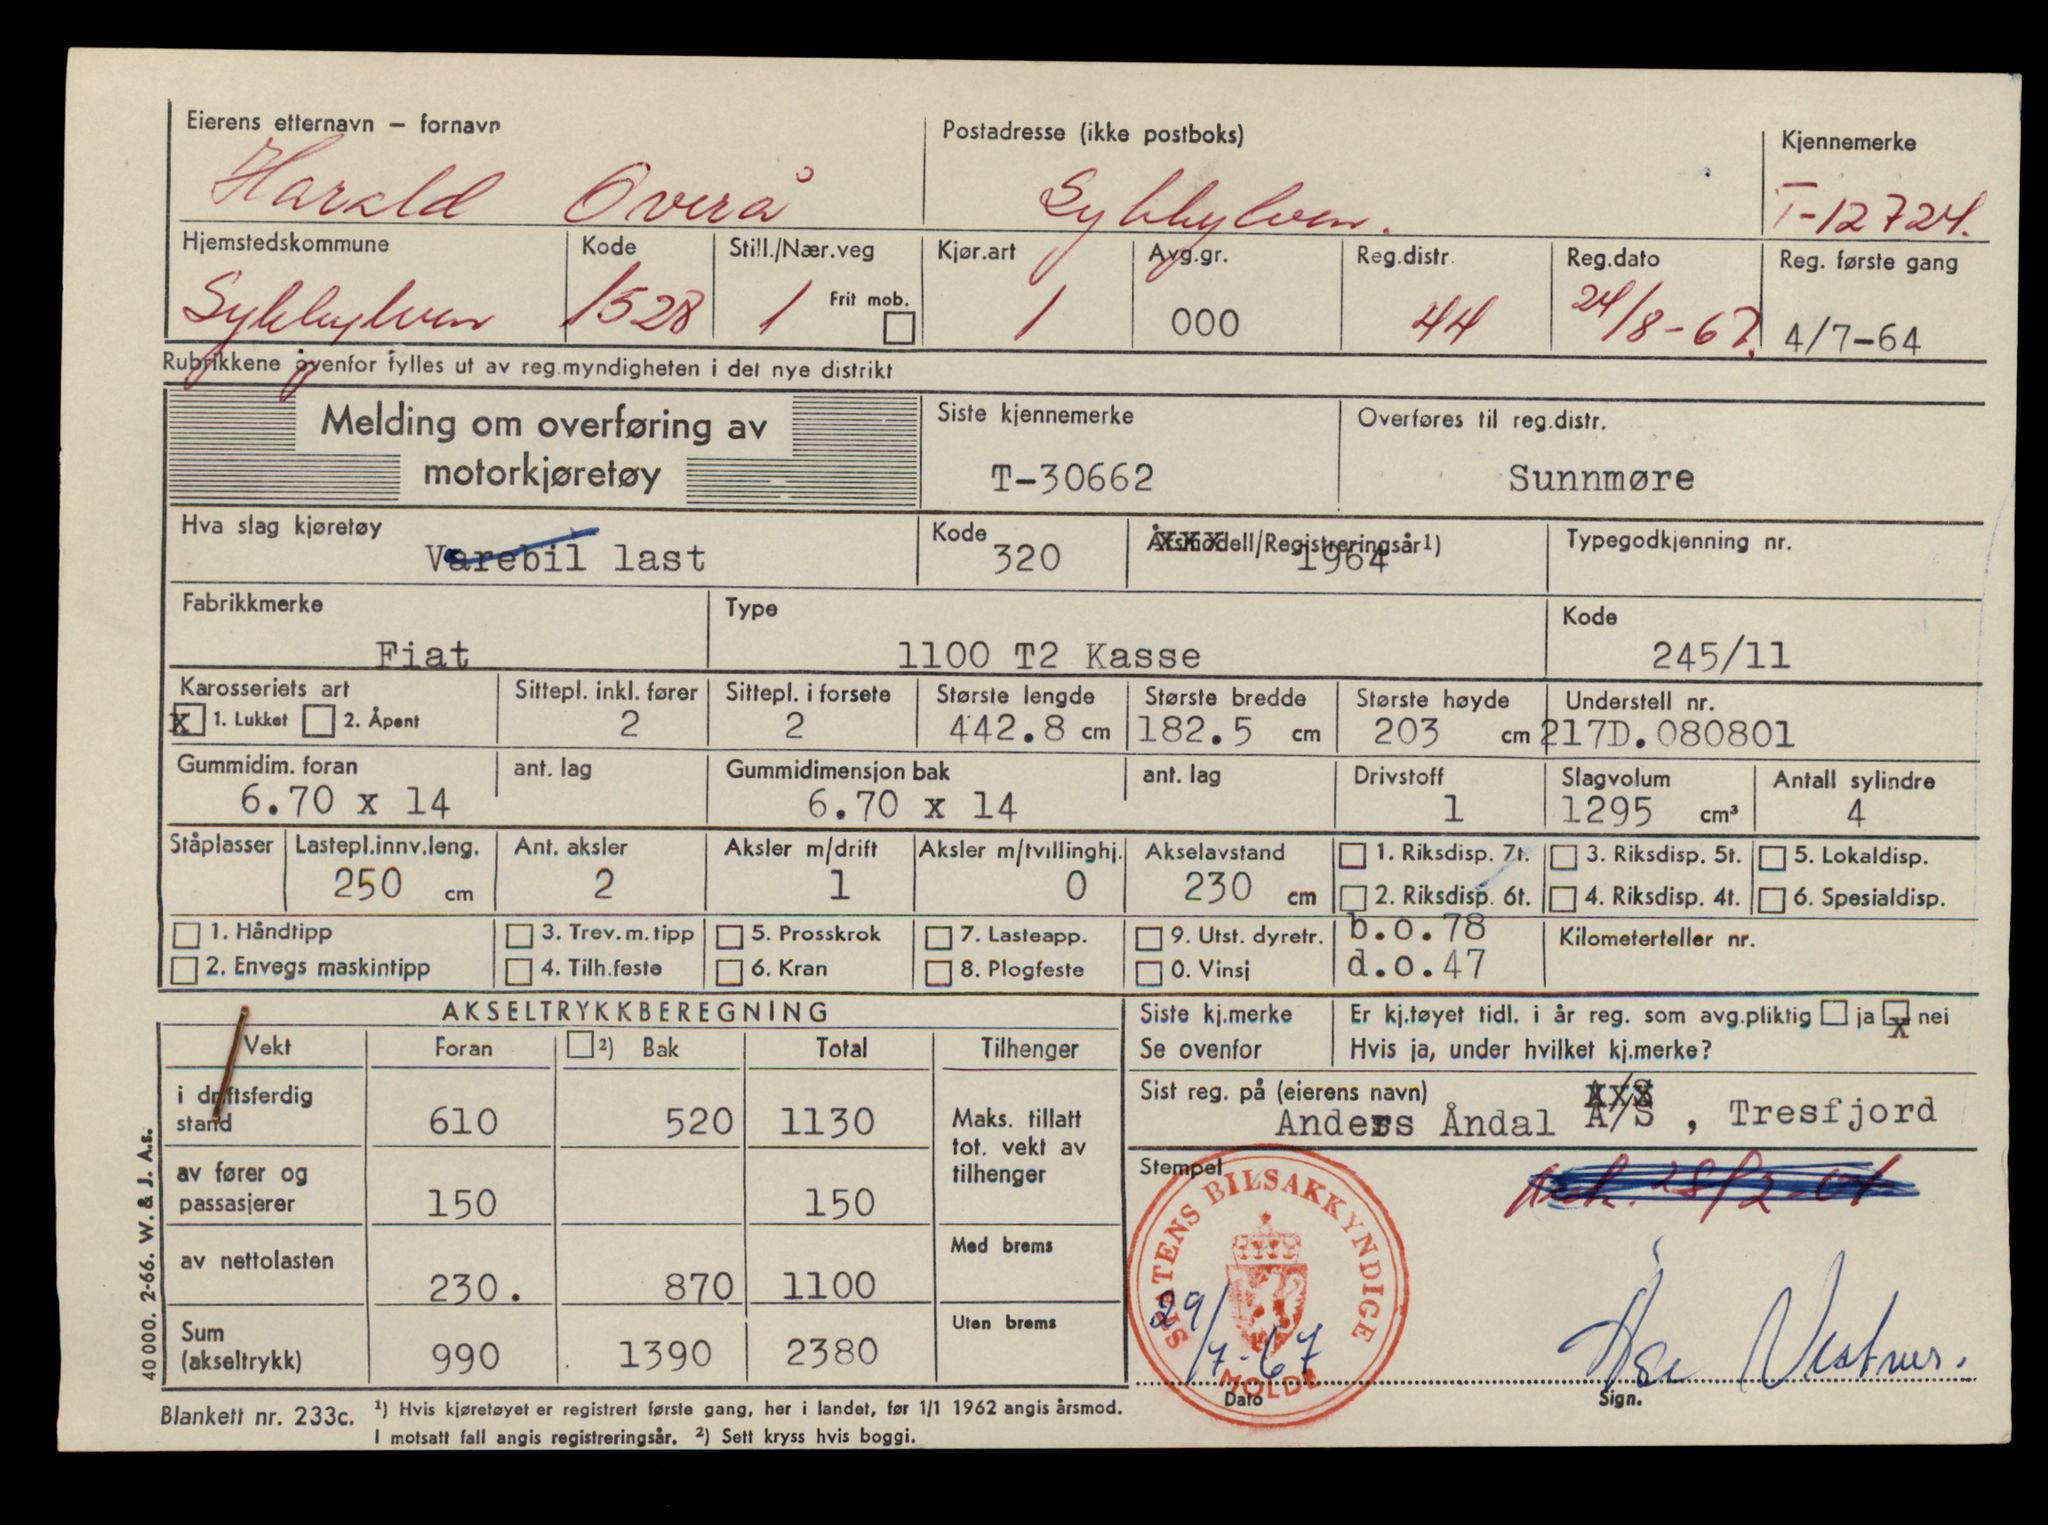 Eierens etternavn – fornavn Postadresse (ikke postboks) Kjennemerke
Harald Overå Sykkylven. T-12724.
Hjemstedskommune Kode Still./Nær.veg Kjør.art Avg.gr. Reg.distr. Reg.dato Reg. første gang
Sykkylven 1528 1 Frit mob. 1 000 44 24/8-67. 4/7-64
Rubrikkene ovenfor fylles ut av reg.myndigheten i det nye distrikt
Melding om overføring av motorkjøretøy
Siste kjennemerke Overføres til reg.distr.
T-30662 Sunnmøre
Hva slag kjøretøy Kode Årsmodell/Registreringsår1) Typegodkjenning nr.
Varebil last 320 1964
Fabrikkmerke Type Kode
Fiat 1100 T2 Kasse 245/11
Karosseriets art Sittepl. inkl. fører Sittepl. i forsete Største lengde Største bredde Største høyde Understell nr.
x 1. Lukket 2. Åpent 2 2 442.8 cm 182.5 cm 203 cm 217D.080801
Gummidim. foran ant. lag Gummidimensjon bak ant. lag Drivstoff Slagvolum Antall sylindre
6.70 x 14 6.70 x 14 1 1295 cm³ 4
Ståplasser Lastepl.innv.leng. Ant. aksler Aksler m/drift Aksler m/tvillinghj. Akselavstand 1. Riksdisp. 7t. 3. Riksdisp. 5t. 5. Lokaldisp.
250 cm 2 1 0 230 cm 2. Riksdisp. 6t. 4. Riksdisp. 4t. 6. Spesialdisp.
1. Håndtipp 3. Trev.m.tipp 5. Prosskrok 7. Lasteapp. 9. Utst. dyretr. b.o.78 Kilometerteller nr.
2. Envegs maskintipp 4. Tilh.feste 6. Kran 8. Plogfeste 0. Vinsj d.o.47
AKSELTRYKKBEREGNING
Vekt Foran 2) Bak Total Tilhenger
i driftsferdig stand 610 520 1130 Maks. tillatt tot. vekt av tilhenger
av fører og passasjerer 150 150
av nettolasten 230. 870 1100 Med brems
Sum (akseltrykk) 990 1390 2380 Uten brems
Siste kj.merke Er kj.tøyet tidl. i år reg. som avg.pliktig ja x nei
Se ovenfor Hvis ja, under hvilket kj.merke?
Sist reg. på (eierens navn) A/S
Anders Åndal A/S , Tresfjord
Stempel
STATENS BILSAKKYNDIGE
MOLDE
29/7-67
Dato Sign.
40 000. 2-66. W. & J. A.s.
Blankett nr. 233c. 1) Hvis kjøretøyet er registrert første gang, her i landet, før 1/1 1962 angis årsmod.
I motsatt fall angis registreringsår. 2) Sett kryss hvis boggi.